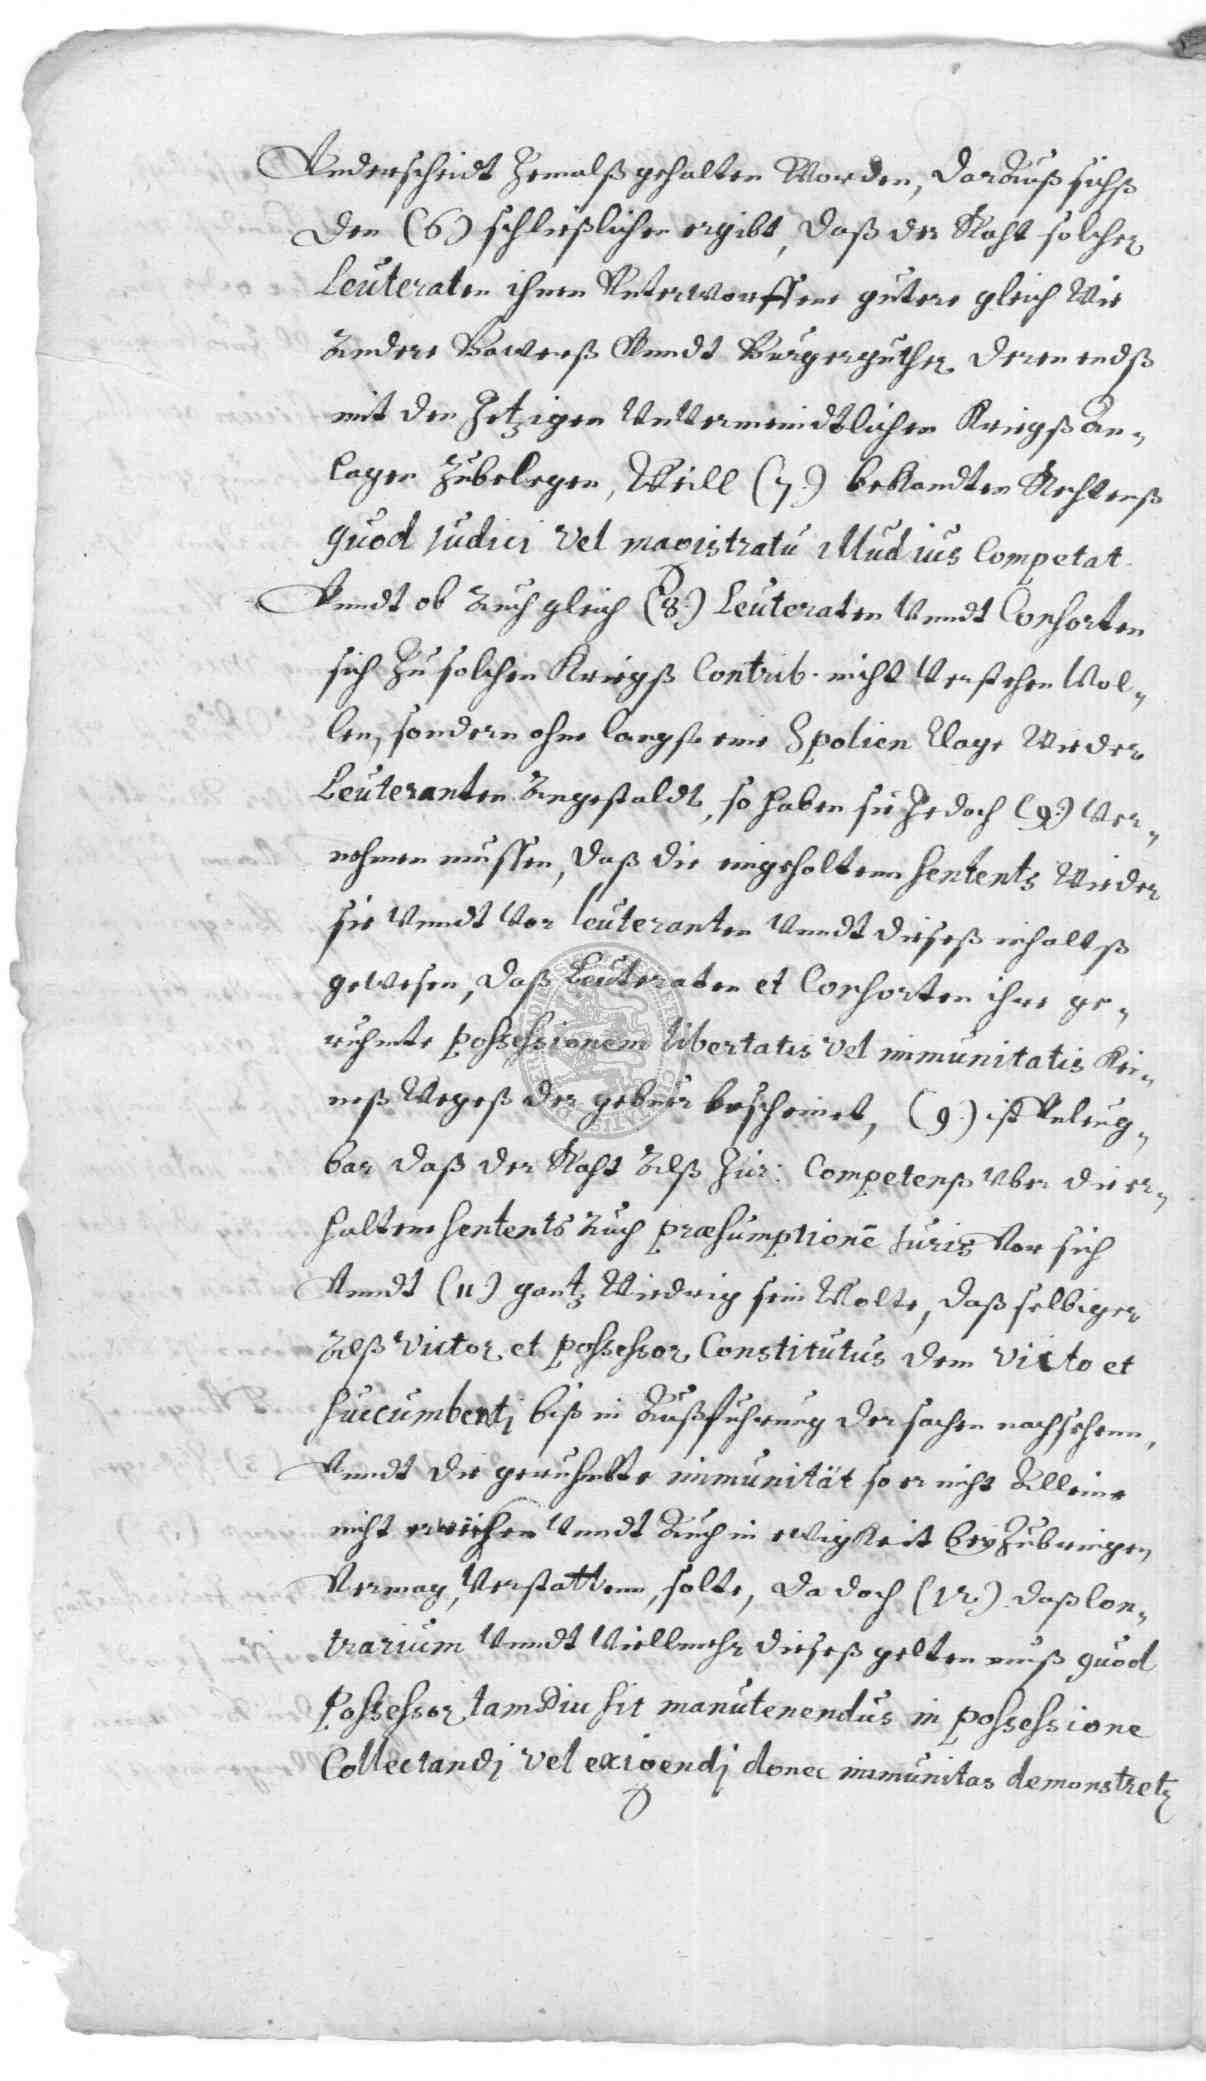 Vnderscheidt Jemalß gehalten Worden, darAuß sichß
den (6) schließlichen ergibt, daß der Raht solcher
Leuteraten ihnen Vnterworffene gutere gleich Wie
Andere Bawerß Vnndt Burgergüther deren endß
mit den Jetzigen VnVermeindtlichen KriegßAn-
lagen Zubelegen, Weill (7.) bekandten Rechtenß
quod Judici vel magistratu illud ius Competat.
Vnndt ob Auch gleich (8.) Leuteraten Vnndt Consorten
sich Zu solchen Kriegß Contrib. nicht Verstehen Wol-
len, sondern ohne langst eine Spolien Klage Wieder
Leuteranten Angestaldt, so haben sie Jedoch (9.) Ver-
nehmen mussen, daß die eingeholtenn sentents Wieder
sie Vnndt Vor leuteranten Vnndt dieseß inhaltß
gewesen, daß Leuteraten et Consorten ihre ge-
ruhmte possessionem libertatis vel immunitatis Kei-
neß Wegeß der gebuer bescheinet, (9.) ist Vnleug-
bar daß der Raht Alß Jur: Competenß Vber die er-
haltene sententz Auch præsumptionē Juris Vor sich
Vnndt (11) gantz Wiedrig sein Wolte, daß selbiger
Alß Victor et possessor Constitutus dem victo et
succumbenti biß in Außfuhrung der sachen nachsehenn,
Vnndt die geruhmbte immunität so er nicht Alleine
nicht erwiesen Vnndt Auch in ewigkeit beyZubringen
Vermag, Verstattenn, solte, da doch (12.) daß Con-
trarium Vnndt Viellmehr dieseß gelten muß quod
Possessor tamdiu sit manutenendus in possessione
Collectandi vel exigendi donec immunitas demonstretur